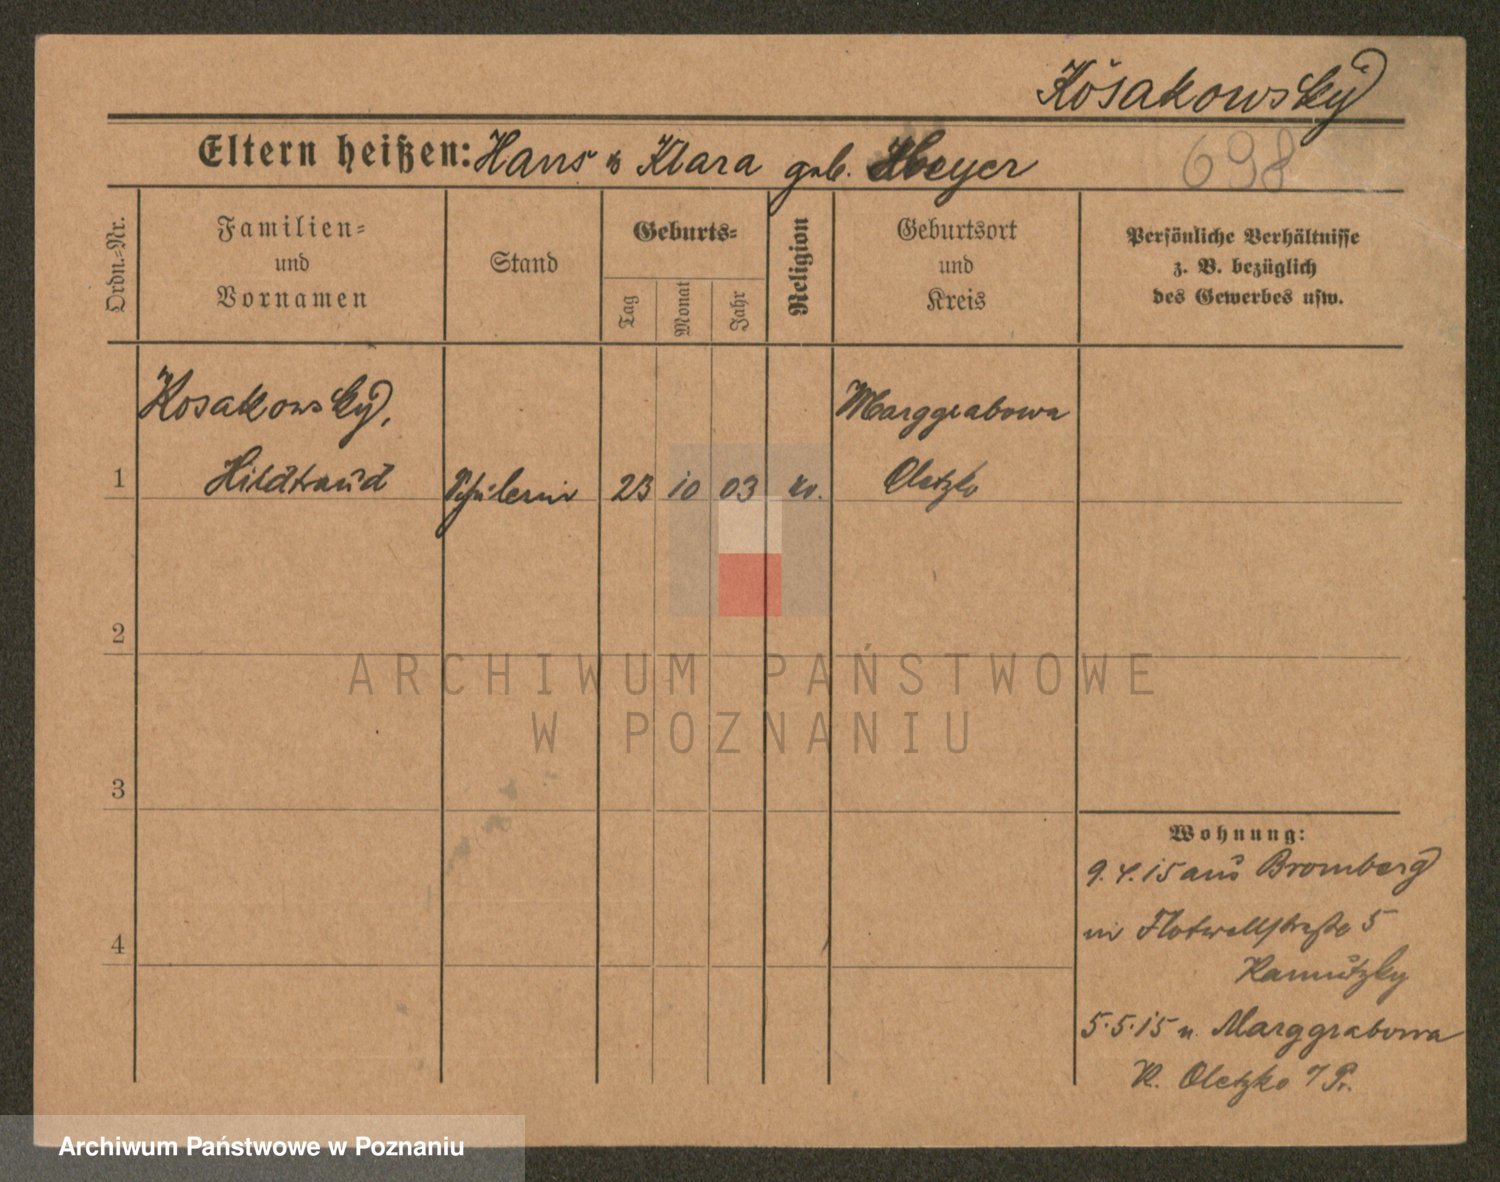 Kosakowsky
Eltern heißen: Hans u Klara geb. Heyer
698
Ordn.-Nr.
Familien-
und
Vornamen
Stand
Geburts-
Tag
Monat
Jahr
Religion
Geburtsort
und
Kreis
Persönliche Verhältnisse
z. B. bezüglich
des Gewerbes usw.
Kosakowsky,
Marggrabowa
1 Hildtraud Schülerin 23 10 03 ev. Oletzko
2
3
4
Wohnung:
9.4.15 aus Bromberg
in Flotwellstraße 5
5.5.15 n. Marggrabowa
K. Oletzko O/Pr.
ARCHIWUM PAŃSTWOWE
W POZNANIU
Archiwum Państwowe w Poznaniu